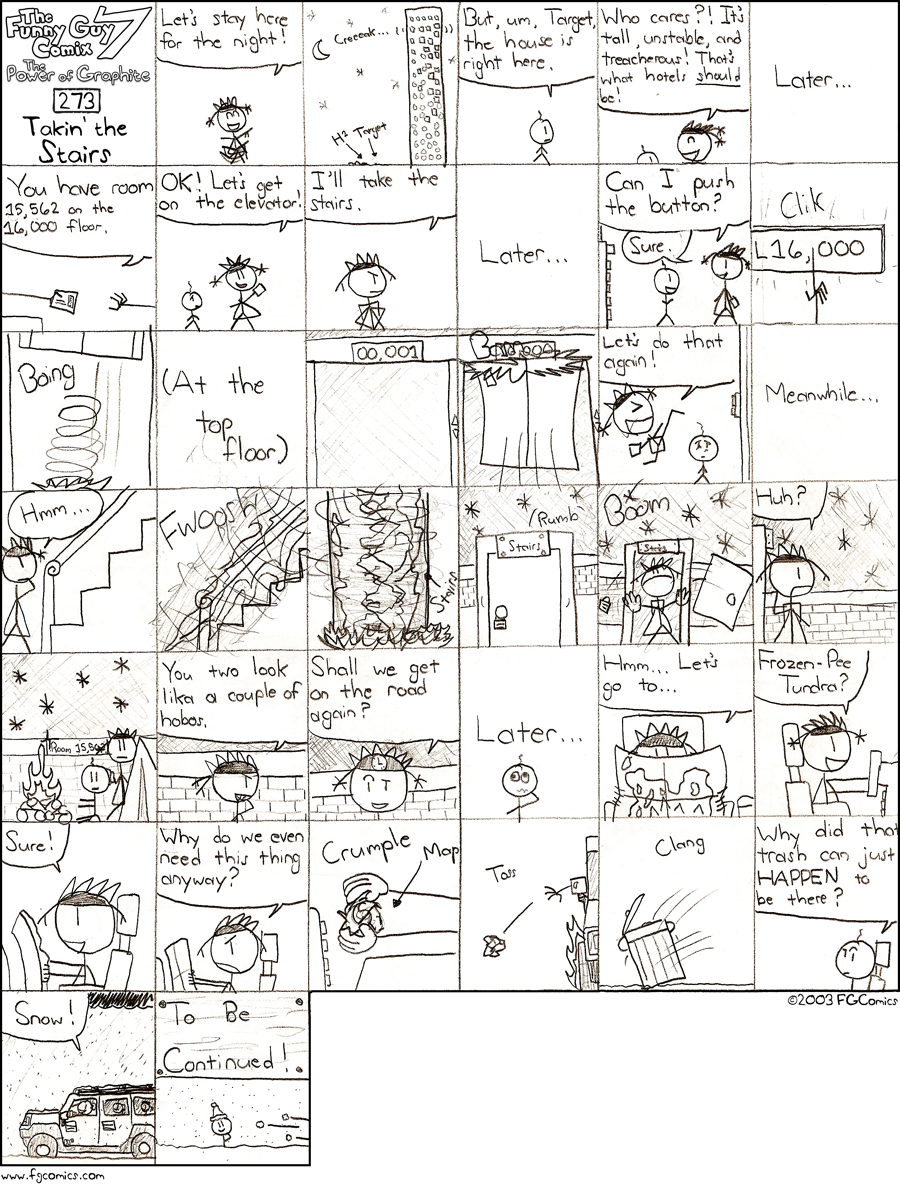 The
Funny Guy
Comix
7
The
Power of Graphite
273
Takin' the
Stairs
Let's stay here
for the night!
Creeeak...
H² Target
But, um, Target,
the house is
right here.
Who cares?! It's
tall, unstable, and
treacherous! That's
what hotels should
be!
Later...
You have room
15,562 on the
16,000 floor.
OK! Let's get
on the elevator!
I'll take the
stairs.
Later...
Can I push
the button?
Sure.
Clik
L16,000
Boing
(At the
top
floor.)
00,001
Let's do that
again!
Meanwhile...
Hmm...
Fwoosh
Stairs
Rumb
Stairs
Boom
Stairs
Huh?
Room 15,562
You two look
like a couple of
hobos.
Shall we get
on the road
again?
Later...
Hmm... Let's
go to...
Frozen-Pee
Tundra?
Sure!
Why do we even
need this thing
anyway?
Crumple
Map
Toss
Clang
Why did that
trash can just
HAPPEN to
be there?
©2003 FGComics
Snow!
To Be
Continued!
www.fgcomics.com